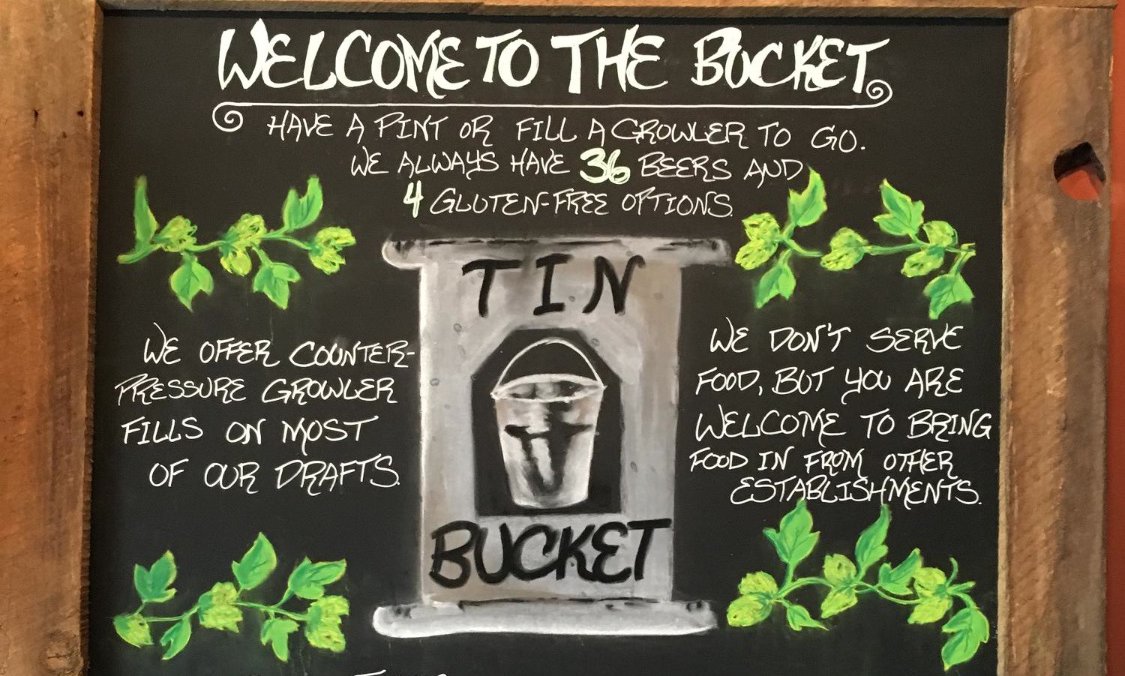 WELCOME TO THE BUCKET
HAVE A PINT OR FILL A GROWLER TO GO.
WE ALWAYS HAVE 36 BEERS AND
4 GLUTEN-FREE OPTIONS.
TIN
BUCKET
WE OFFER COUNTER-
PRESSURE GROWLER
FILLS ON MOST
OF OUR DRAFTS.
WE DON'T SERVE
FOOD, BUT YOU ARE
WELCOME TO BRING
FOOD IN FROM OTHER
ESTABLISHMENTS.